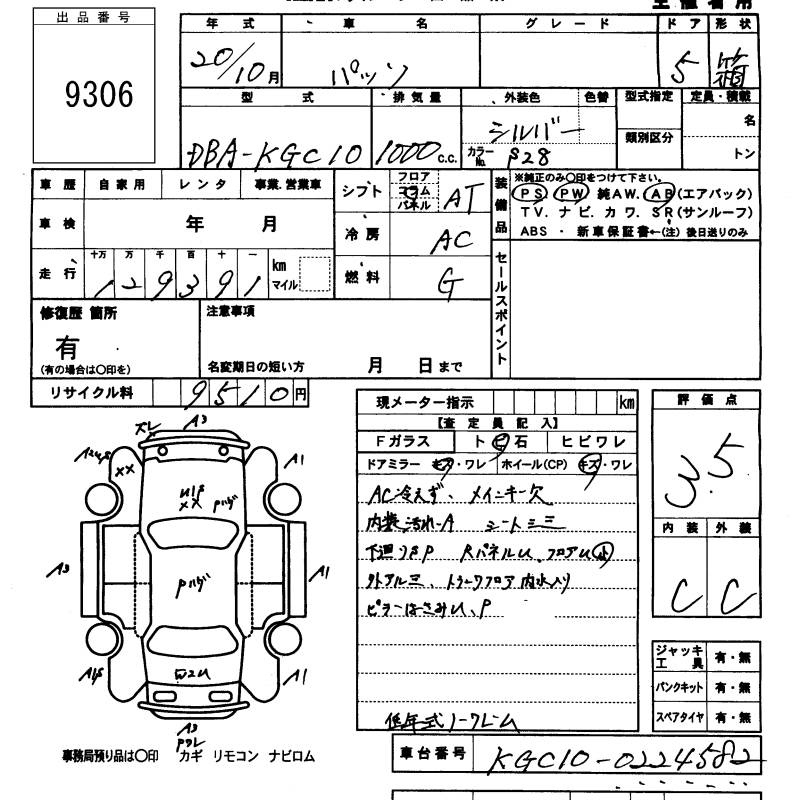 出品番号
9306
年式 車名 グレード ドア 形状
20/10月 パッソ 5 箱
型式 排気量 外装色 色替 型式指定 定員・積載
DBA-KGC10 1000c.c. シルバー 類別区分 名
カラーNo. S28 トン
車歴 自家用 レンタ 事業.営業車
車検 年 月
走行 十万 万 千 百 十 一 km マイル
129391
シフト フロア コラム パネル AT
冷房 AC
燃料 G
装備品
※純正のみ〇印をつけて下さい。
PS PW 純AW. AB(エアバック)
TV. ナビ. カワ. SR(サンルーフ)
ABS ・ 新車保証書←(注) 後日送りのみ
セールスポイント
修復歴 箇所
有
(有の場合は〇印を)
注意事項
名変期日の短い方 月 日まで
リサイクル料 9510円
現メーター指示 km
【査定員記入】
Fガラス トビ石 ヒビワレ
ドアミラー キズ・ワレ ホイール(CP) キズ・ワレ
AC冷えず、メインキー欠
内装汚れ-A シート三三
下廻りSP RパネルU、フロアU小
外アル三、トランクフロア内水入り
ピラーはさみU、P
低年式ノークレーム
評価点
3.5
内装 外装
C C
ジャッキ工具 有・無
パンクキット 有・無
スペアタイヤ 有・無
車台番号 KGC10-0224582
A3
A1
XX
Pハゲ
A3
A1
Pハゲ
W2U
A1
A3
事務局預り品は〇印 カギ リモコン ナビロム